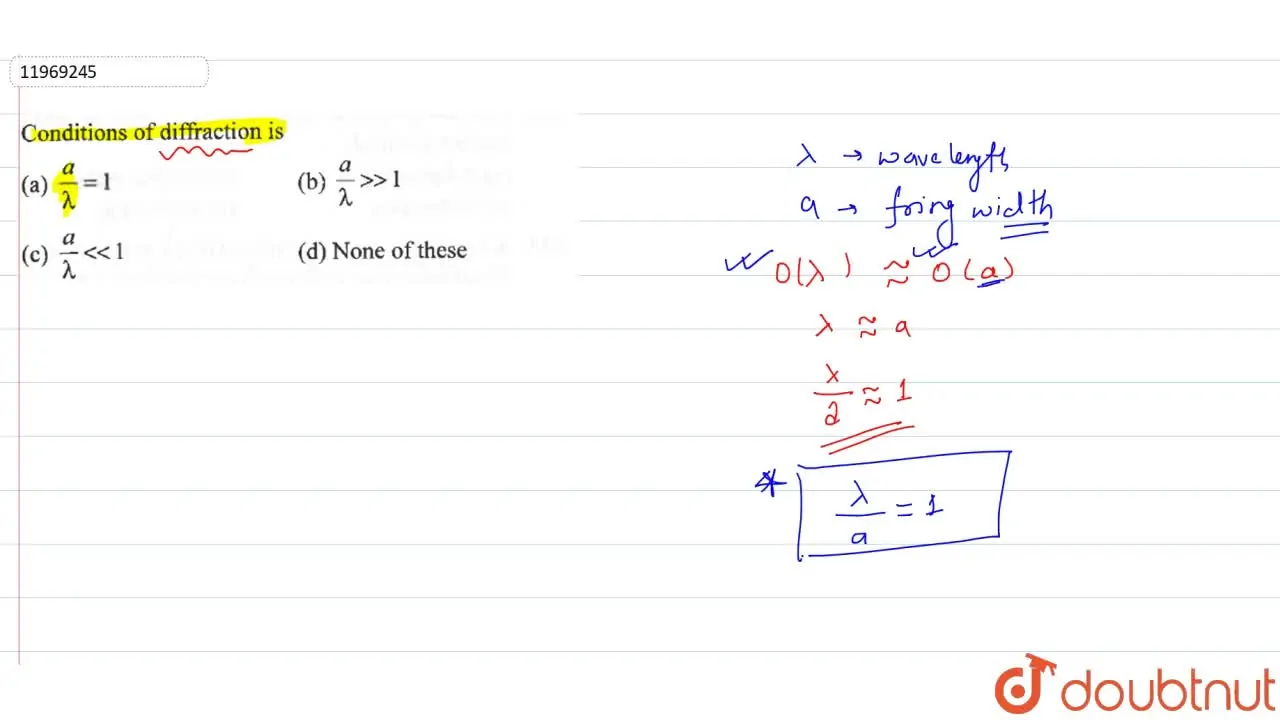 11969245
Conditions of diffraction is
(a) a/λ = 1
(b) a/λ >> 1
(c) a/λ << 1
(d) None of these
λ → wavelength
a → fring width
O(λ) ≈ O(a)
λ ≈ a
λ/a ≈ 1
* λ/a = 1
doubtnut